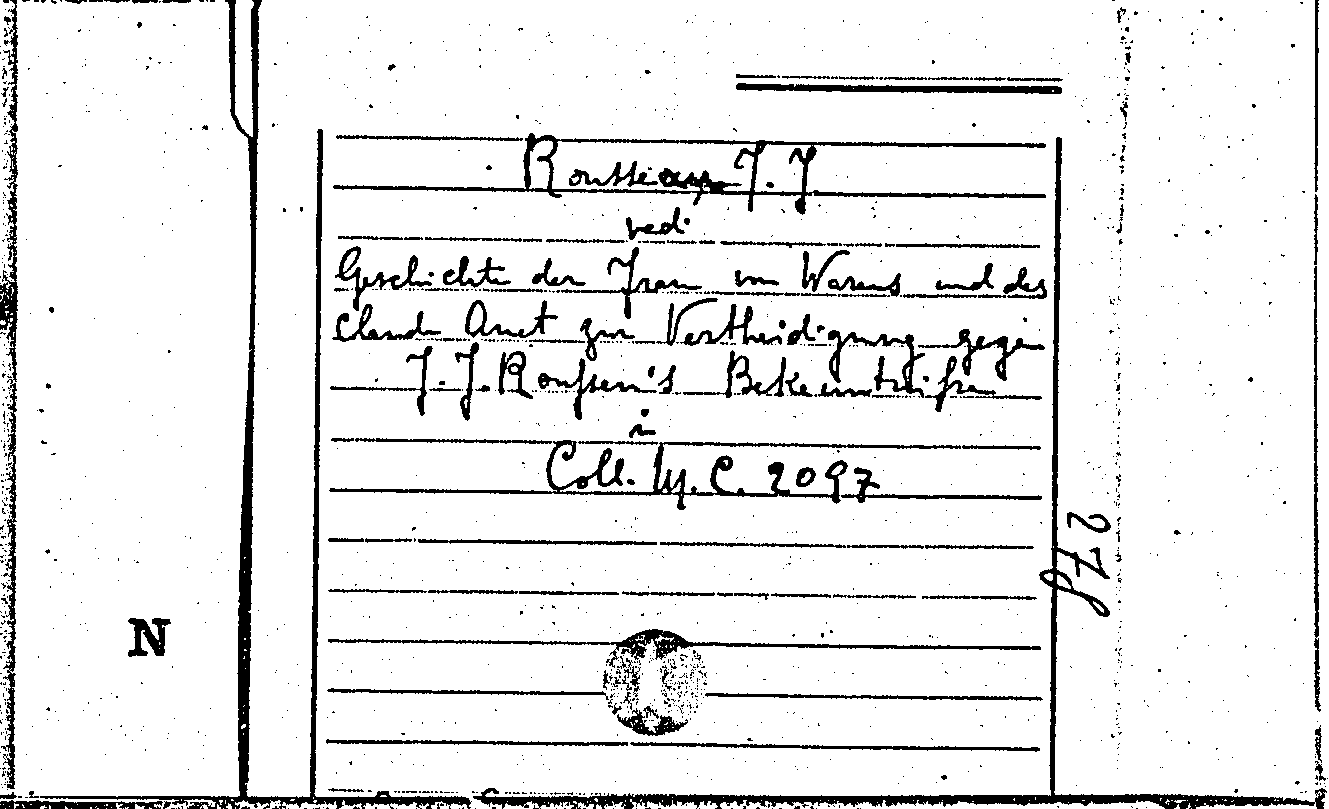 Rousseau, J. J.
vedi
Geschichte der Frau von Warens und des
Claude Anet zur Vertheidigung gegen
J. J. Roussen's Bekenntnisse
in
Coll. M. C. 2097
278
N